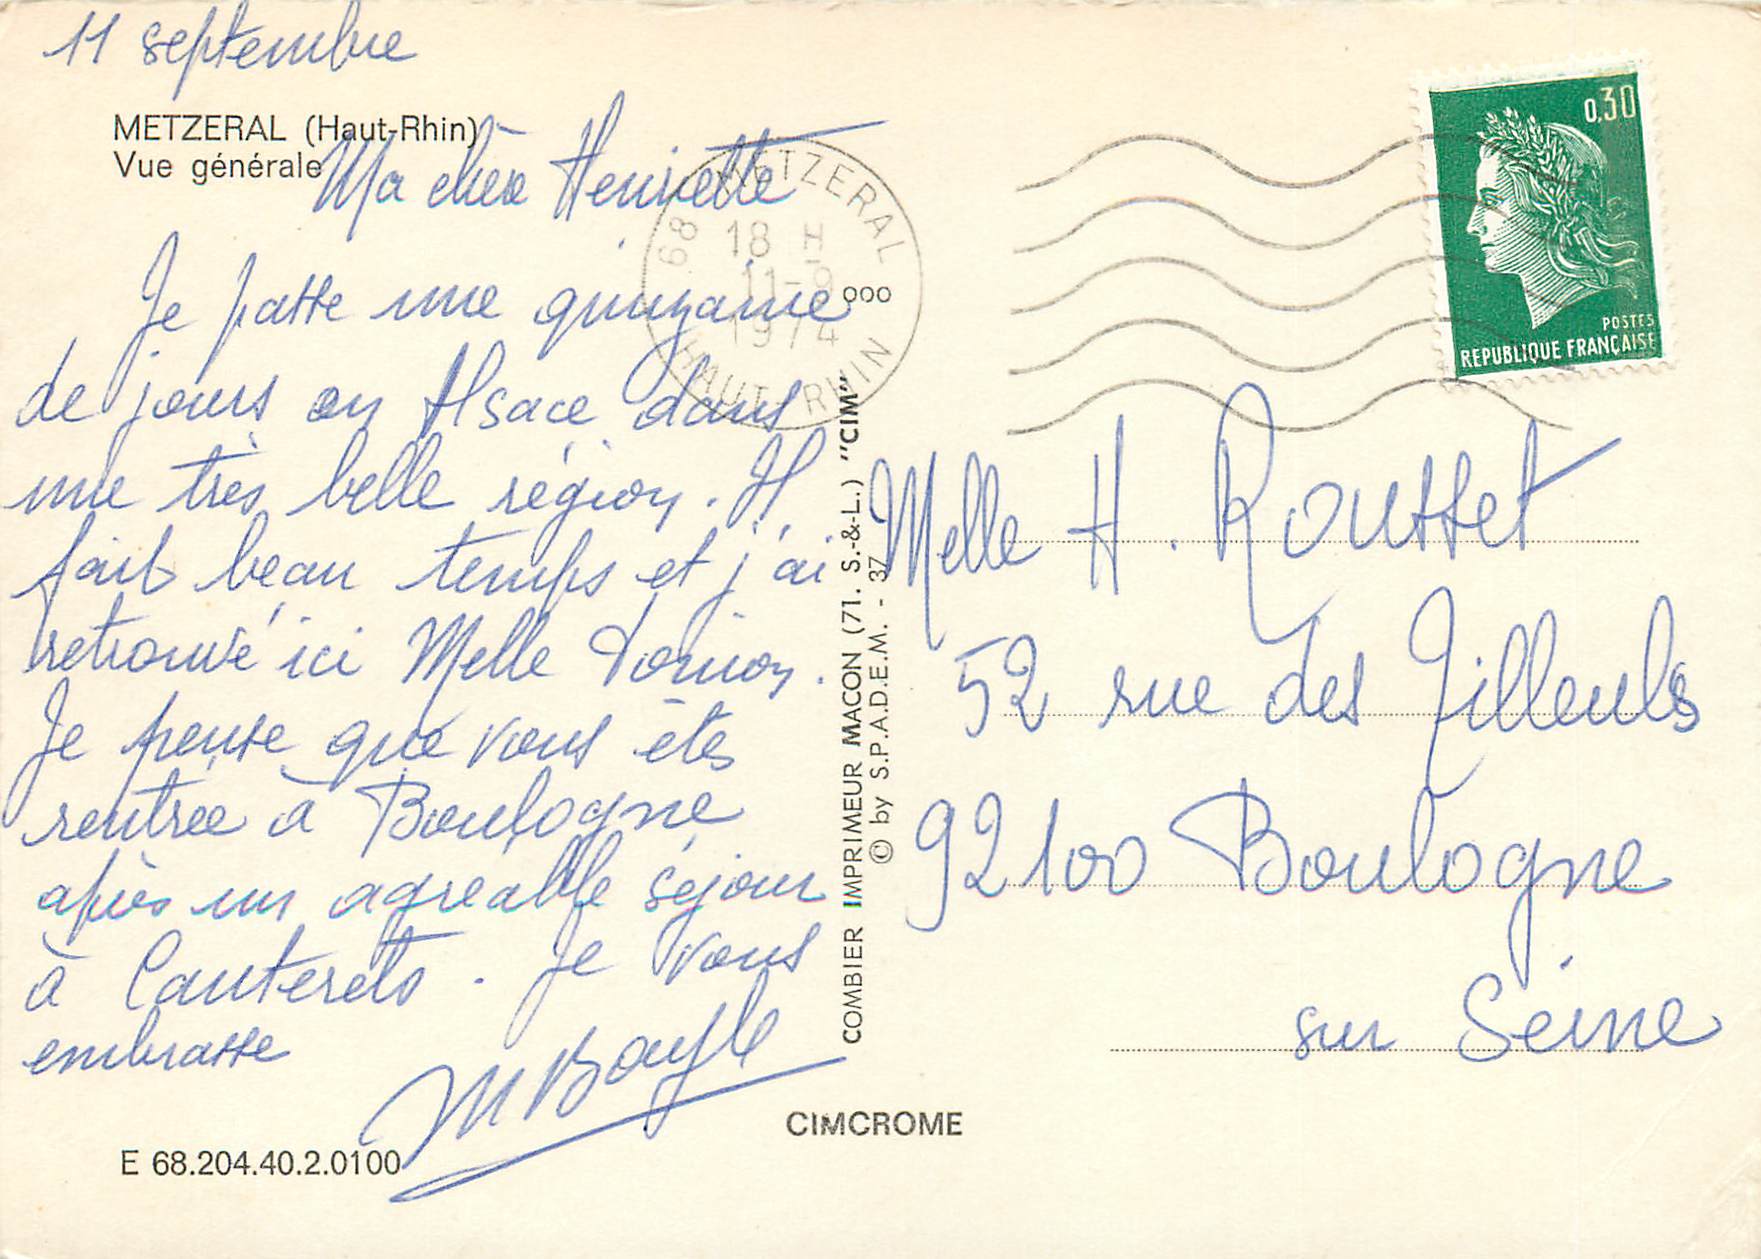 11 septembre
METZERAL (Haut-Rhin)
Vue générale
Ma chère Henriette
Je passe une quinzaine
de jours en Alsace dans
une très belle région. Il
fait beau temps et j'ai
retrouvé ici Melle
Je pense que vous êtes
rentrée à Boulogne
après un agréable séjour
à Cauterets. Je vous
embrasse
M Bayle
E 68.204.40.2.0100
COMBIER IMPRIMEUR MACON (71. S.-&-L.) "CIM"
© by S.P.A.D.E.M. - 37
CIMCROME
68 METZERAL
18 H
11-9
1974
HAUT-RHIN
°°°
0,30
POSTES
REPUBLIQUE FRANÇAISE
Melle H. Rousset
52 rue des Tilleuls
92100 Boulogne
sur Seine